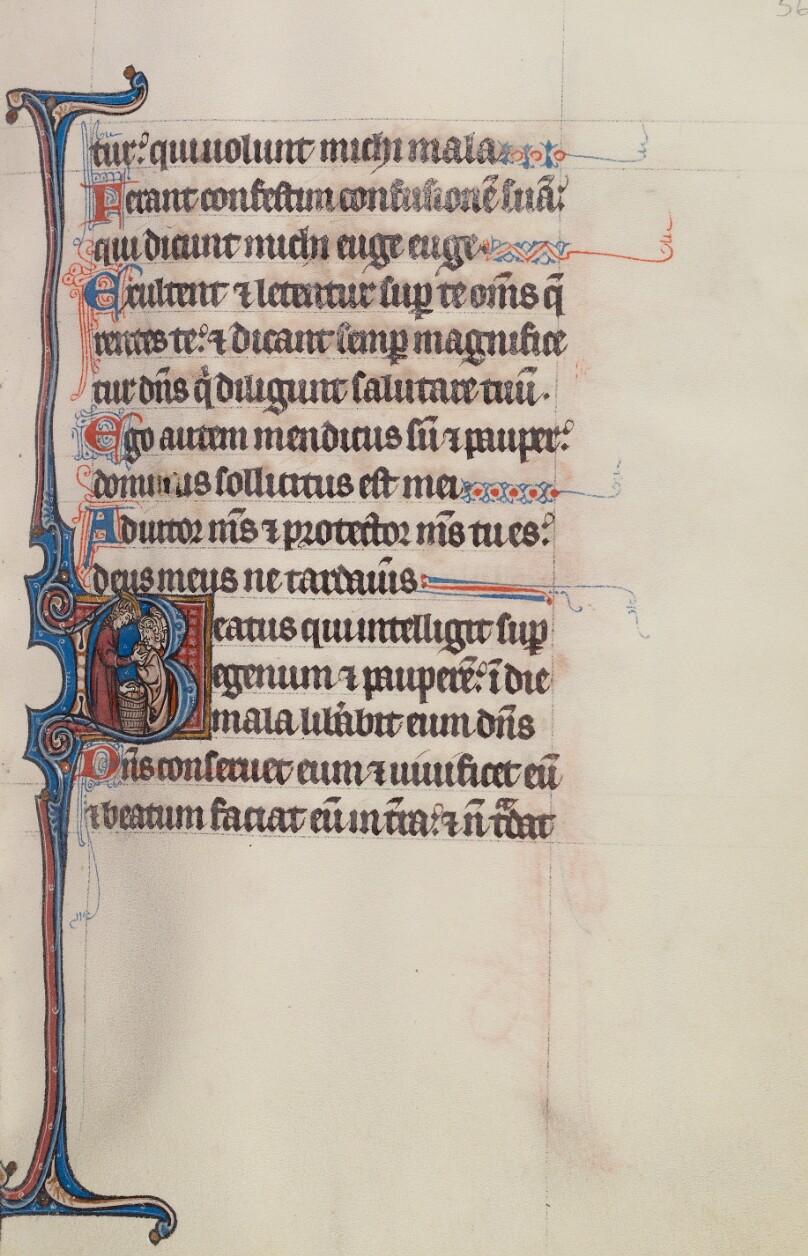 56
tur: qui uolunt michi mala
Ferant confestim confusionē suā:
qui dicunt michi euge euge
Exultent ⁊ letentur sup̲ te om̄s q̄
rentes te: ⁊ dicant semp̲ magnifice
tur dn̄s q̇ diligunt salutare tuū.
Ego autem mendicus sū ⁊ pauper:
dominus sollicitus est mei
Adiutor m̄s ⁊ protector m̄s tu es:
deus meus ne tardaueris
Beatus qui intelligit sup̲
egenum ⁊ pauperē: ī die
mala lib̄abit eum dn̄s
Dn̄s conseruet eum ⁊ uiuificet eū
⁊ beatum faciat eū in t̄ra: ⁊ n̄ tͣdat